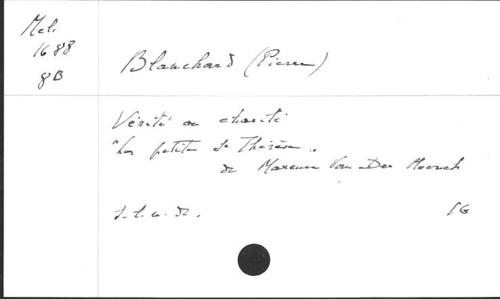 Mel.
1688
8B
Blanchard (Pierre)
Vérité ou charité
"La petite St Thérèse"
de Maxence Van Der Meersch
s.l.n.d.